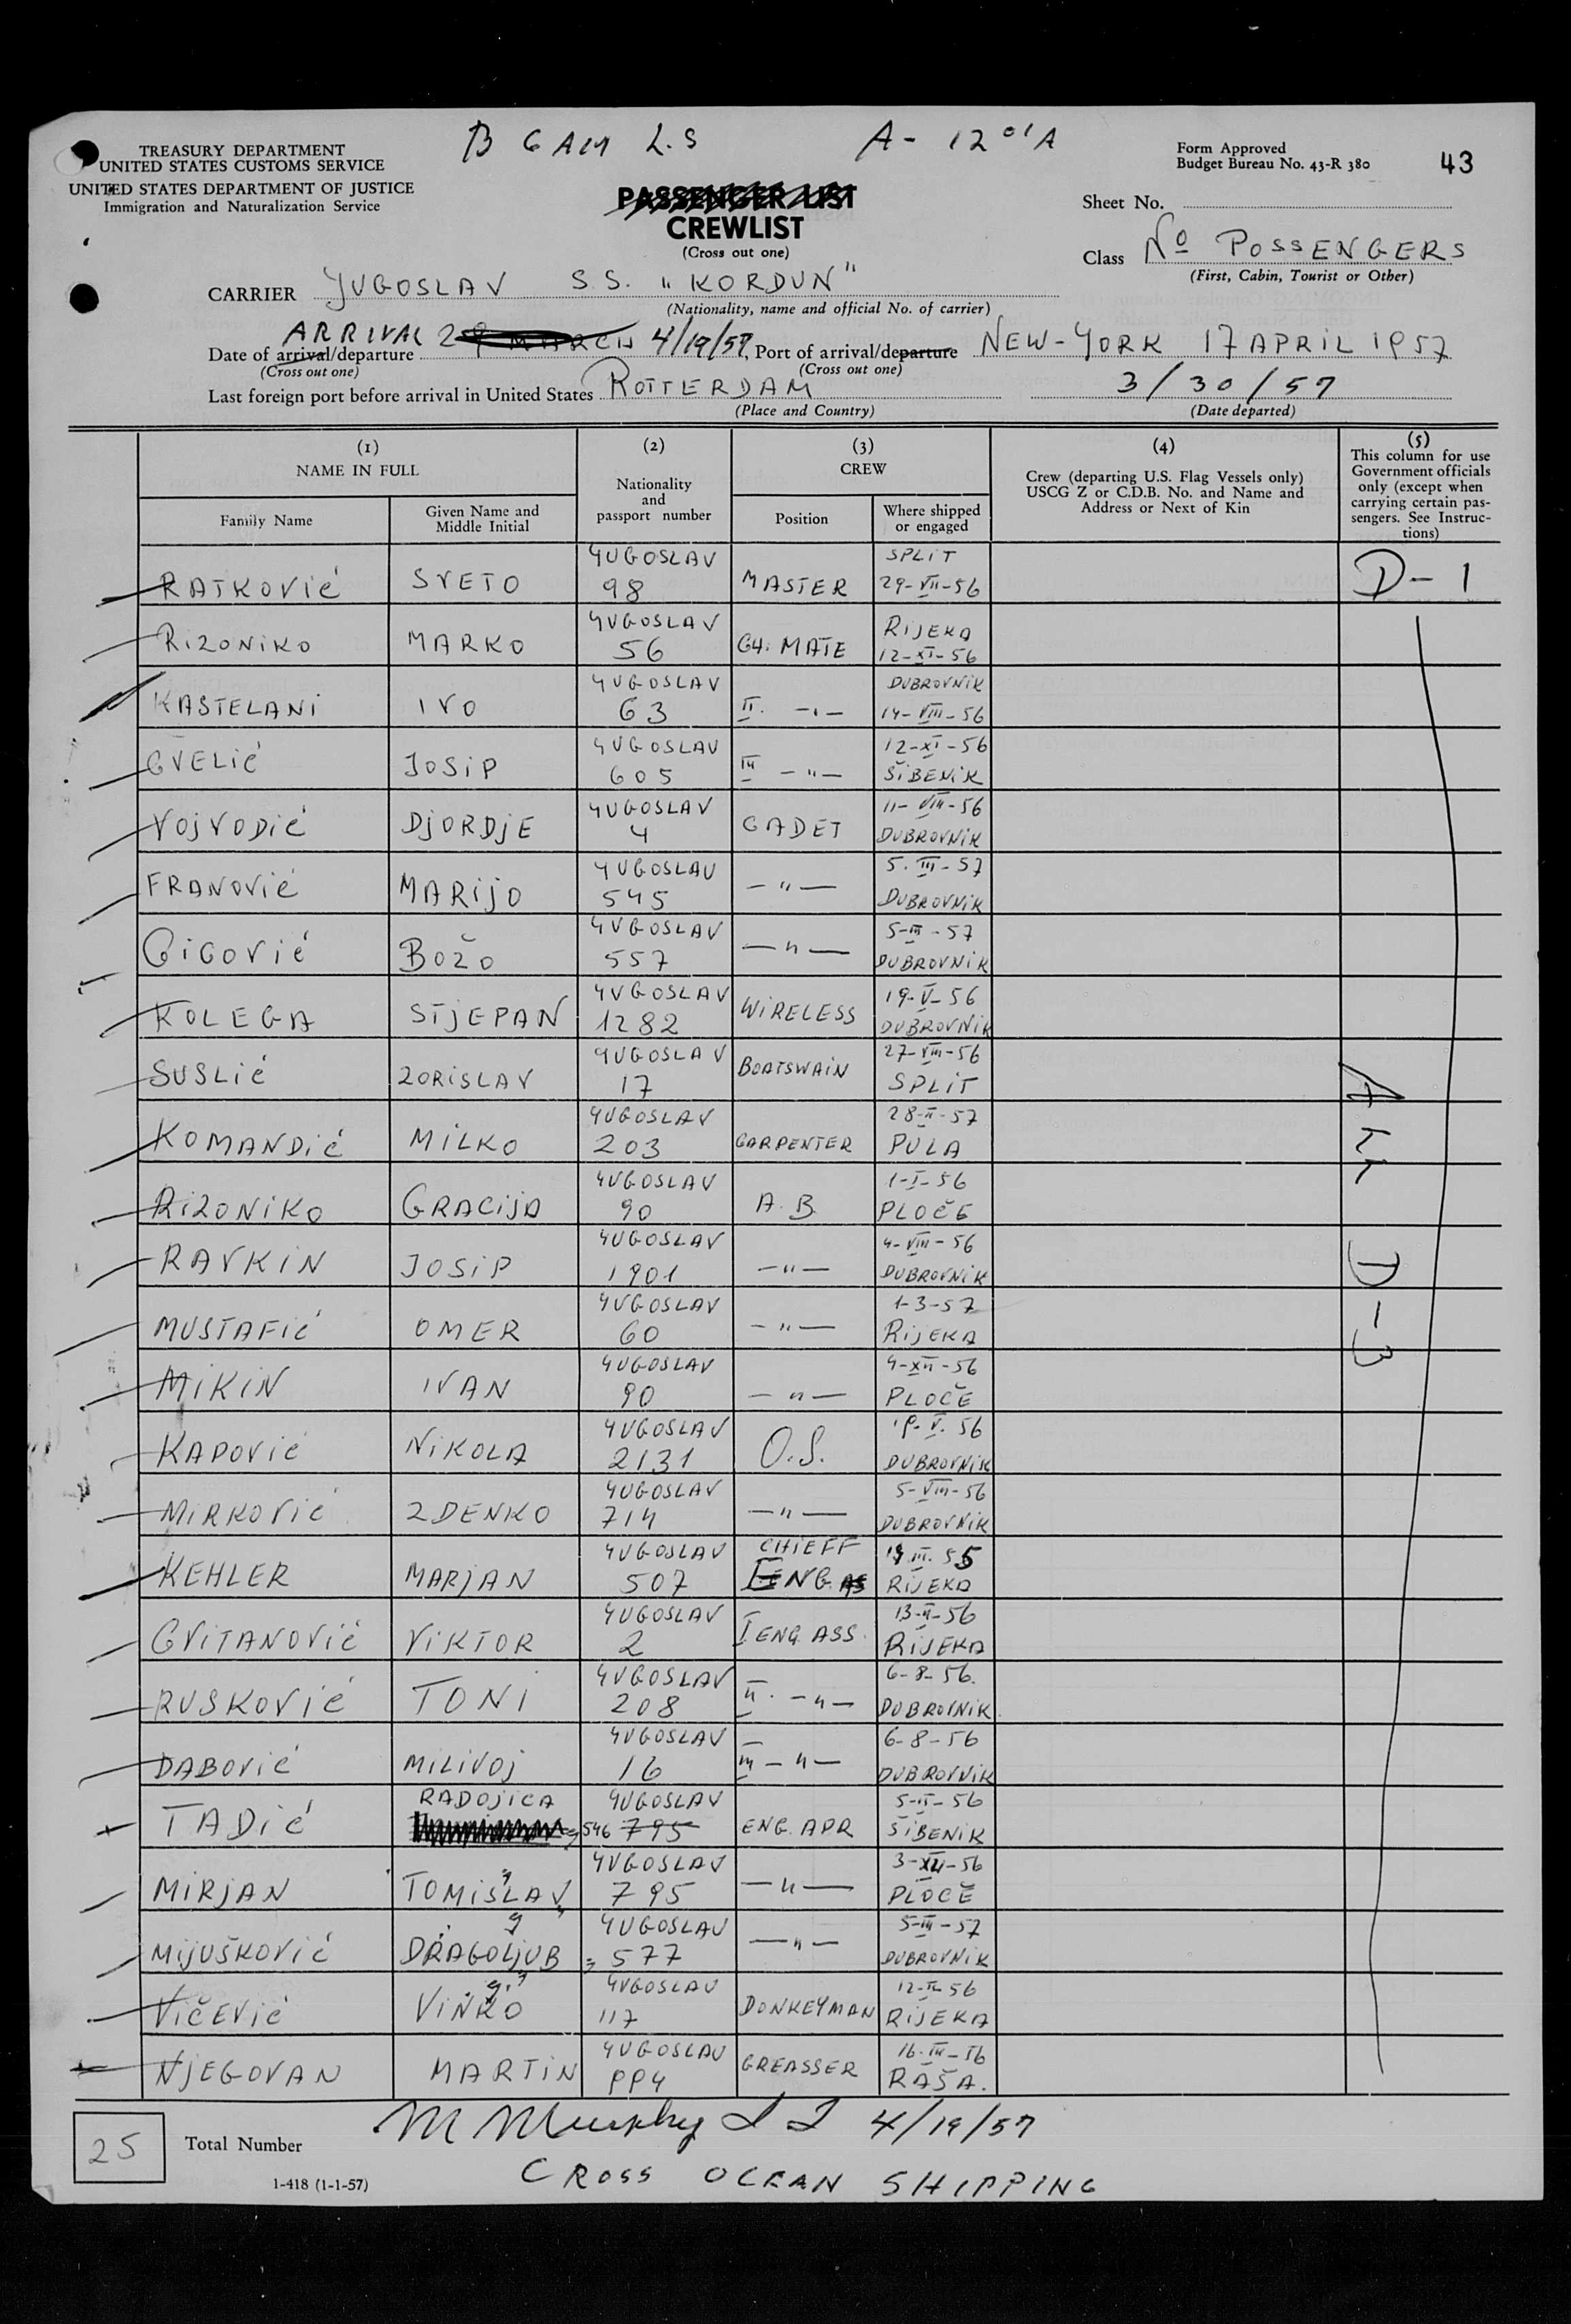 B 6 AM L.S
A - 12 01 A
TREASURY DEPARTMENT
UNITED STATES CUSTOMS SERVICE
UNITED STATES DEPARTMENT OF JUSTICE
Immigration and Naturalization Service
Form Approved
Budget Bureau No. 43-R 380
43
PASSENGER LIST
CREWLIST
(Cross out one)
Sheet No.
Class No POSSENGERS
(First, Cabin, Tourist or Other)
CARRIER JUGOSLAV S.S. "KORDUN"
(Nationality, name and official No. of carrier)
ARRIVAL
Date of arrival/departure 29 MARCH 4/19/57. Port of arrival/departure NEW-YORK 17 APRIL 1957
(Cross out one) (Cross out one)
Last foreign port before arrival in United States ROTTERDAM 3/30/57
(Place and Country) (Date departed)
(1) NAME IN FULL
Family Name
Given Name and Middle Initial
(2) Nationality and passport number
(3) CREW
Position
Where shipped or engaged
(4) Crew (departing U.S. Flag Vessels only) USCG Z or C.D.B. No. and Name and Address or Next of Kin
(5) This column for use Government officials only (except when carrying certain passengers. See Instructions)
RATKOVIĆ SVETO YUGOSLAV 98 MASTER SPLIT 29-VII-56 D-1
RIZONIKO MARKO YUGOSLAV 56 CH. MATE RIJEKA 12-XI-56
KASTELANI IVO YUGOSLAV 63 II. -"- DUBROVNIK 14-VIII-56
CVELIĆ JOSIP YUGOSLAV 605 III -"- 12-XI-56 ŠIBENIK
VOJVODIĆ DJORDJE YUGOSLAV 4 CADET 11-VIII-56 DUBROVNIK
FRANOVIĆ MARIJO YUGOSLAV 545 -"- 5.III-57 DUBROVNIK
GIGOVIĆ BOŽO YUGOSLAV 557 -"- 5-III-57 DUBROVNIK
KOLEGA STJEPAN YUGOSLAV 1282 WIRELESS 19-V-56 DUBROVNIK
SUSLIĆ ZORISLAV YUGOSLAV 17 BOATSWAIN 27-VIII-56 SPLIT
KOMANDIĆ MILKO YUGOSLAV 203 CARPENTER 28-II-57 PULA
RIZONIKO GRACIJA YUGOSLAV 90 A.B. 1-I-56 PLOČE
RAVKIN JOSIP YUGOSLAV 1901 -"- 4-VIII-56 DUBROVNIK
MUSTAFIĆ OMER YUGOSLAV 60 -"- 1-3-57 RIJEKA
MIKIN IVAN YUGOSLAV 90 -"- 4-XII-56 PLOČE
KAPOVIĆ NIKOLA YUGOSLAV 2131 O.S. 19.V.56 DUBROVNIK
MIRKOVIĆ ZDENKO YUGOSLAV 714 -"- 5-VIII-56 DUBROVNIK
KEHLER MARJAN YUGOSLAV 507 CHIEFF ENG. 19.III.55 RIJEKA
CVITANOVIĆ VIKTOR YUGOSLAV 2 I ENG. ASS. 13-II-56 RIJEKA
RUSKOVIĆ TONI YUGOSLAV 208 II. -"- 6-8-56. DUBROVNIK
DABOVIĆ MILIVOJ YUGOSLAV 16 III -"- 6-8-56 DUBROVNIK
TADIĆ RADOJICA YUGOSLAV 546 795 ENG. APR 5-II-56 ŠIBENIK
MIRJAN TOMISLAV YUGOSLAV 795 -"- 3-XII-56 PLOČE
MIJUŠKOVIĆ DRAGOLJUB YUGOSLAV 577 -"- 5-III-57 DUBROVNIK
VIČEVIĆ VINKO YUGOSLAV 117 DONKEYMAN 12-II-56 RIJEKA
NJEGOVAN MARTIN YUGOSLAV 994 GREASSER 16-III-56 RAŠA.
ATT D-3
25 Total Number
M Murphy I I 4/19/57
I-418 (1-1-57)
CROSS OCEAN SHIPPING